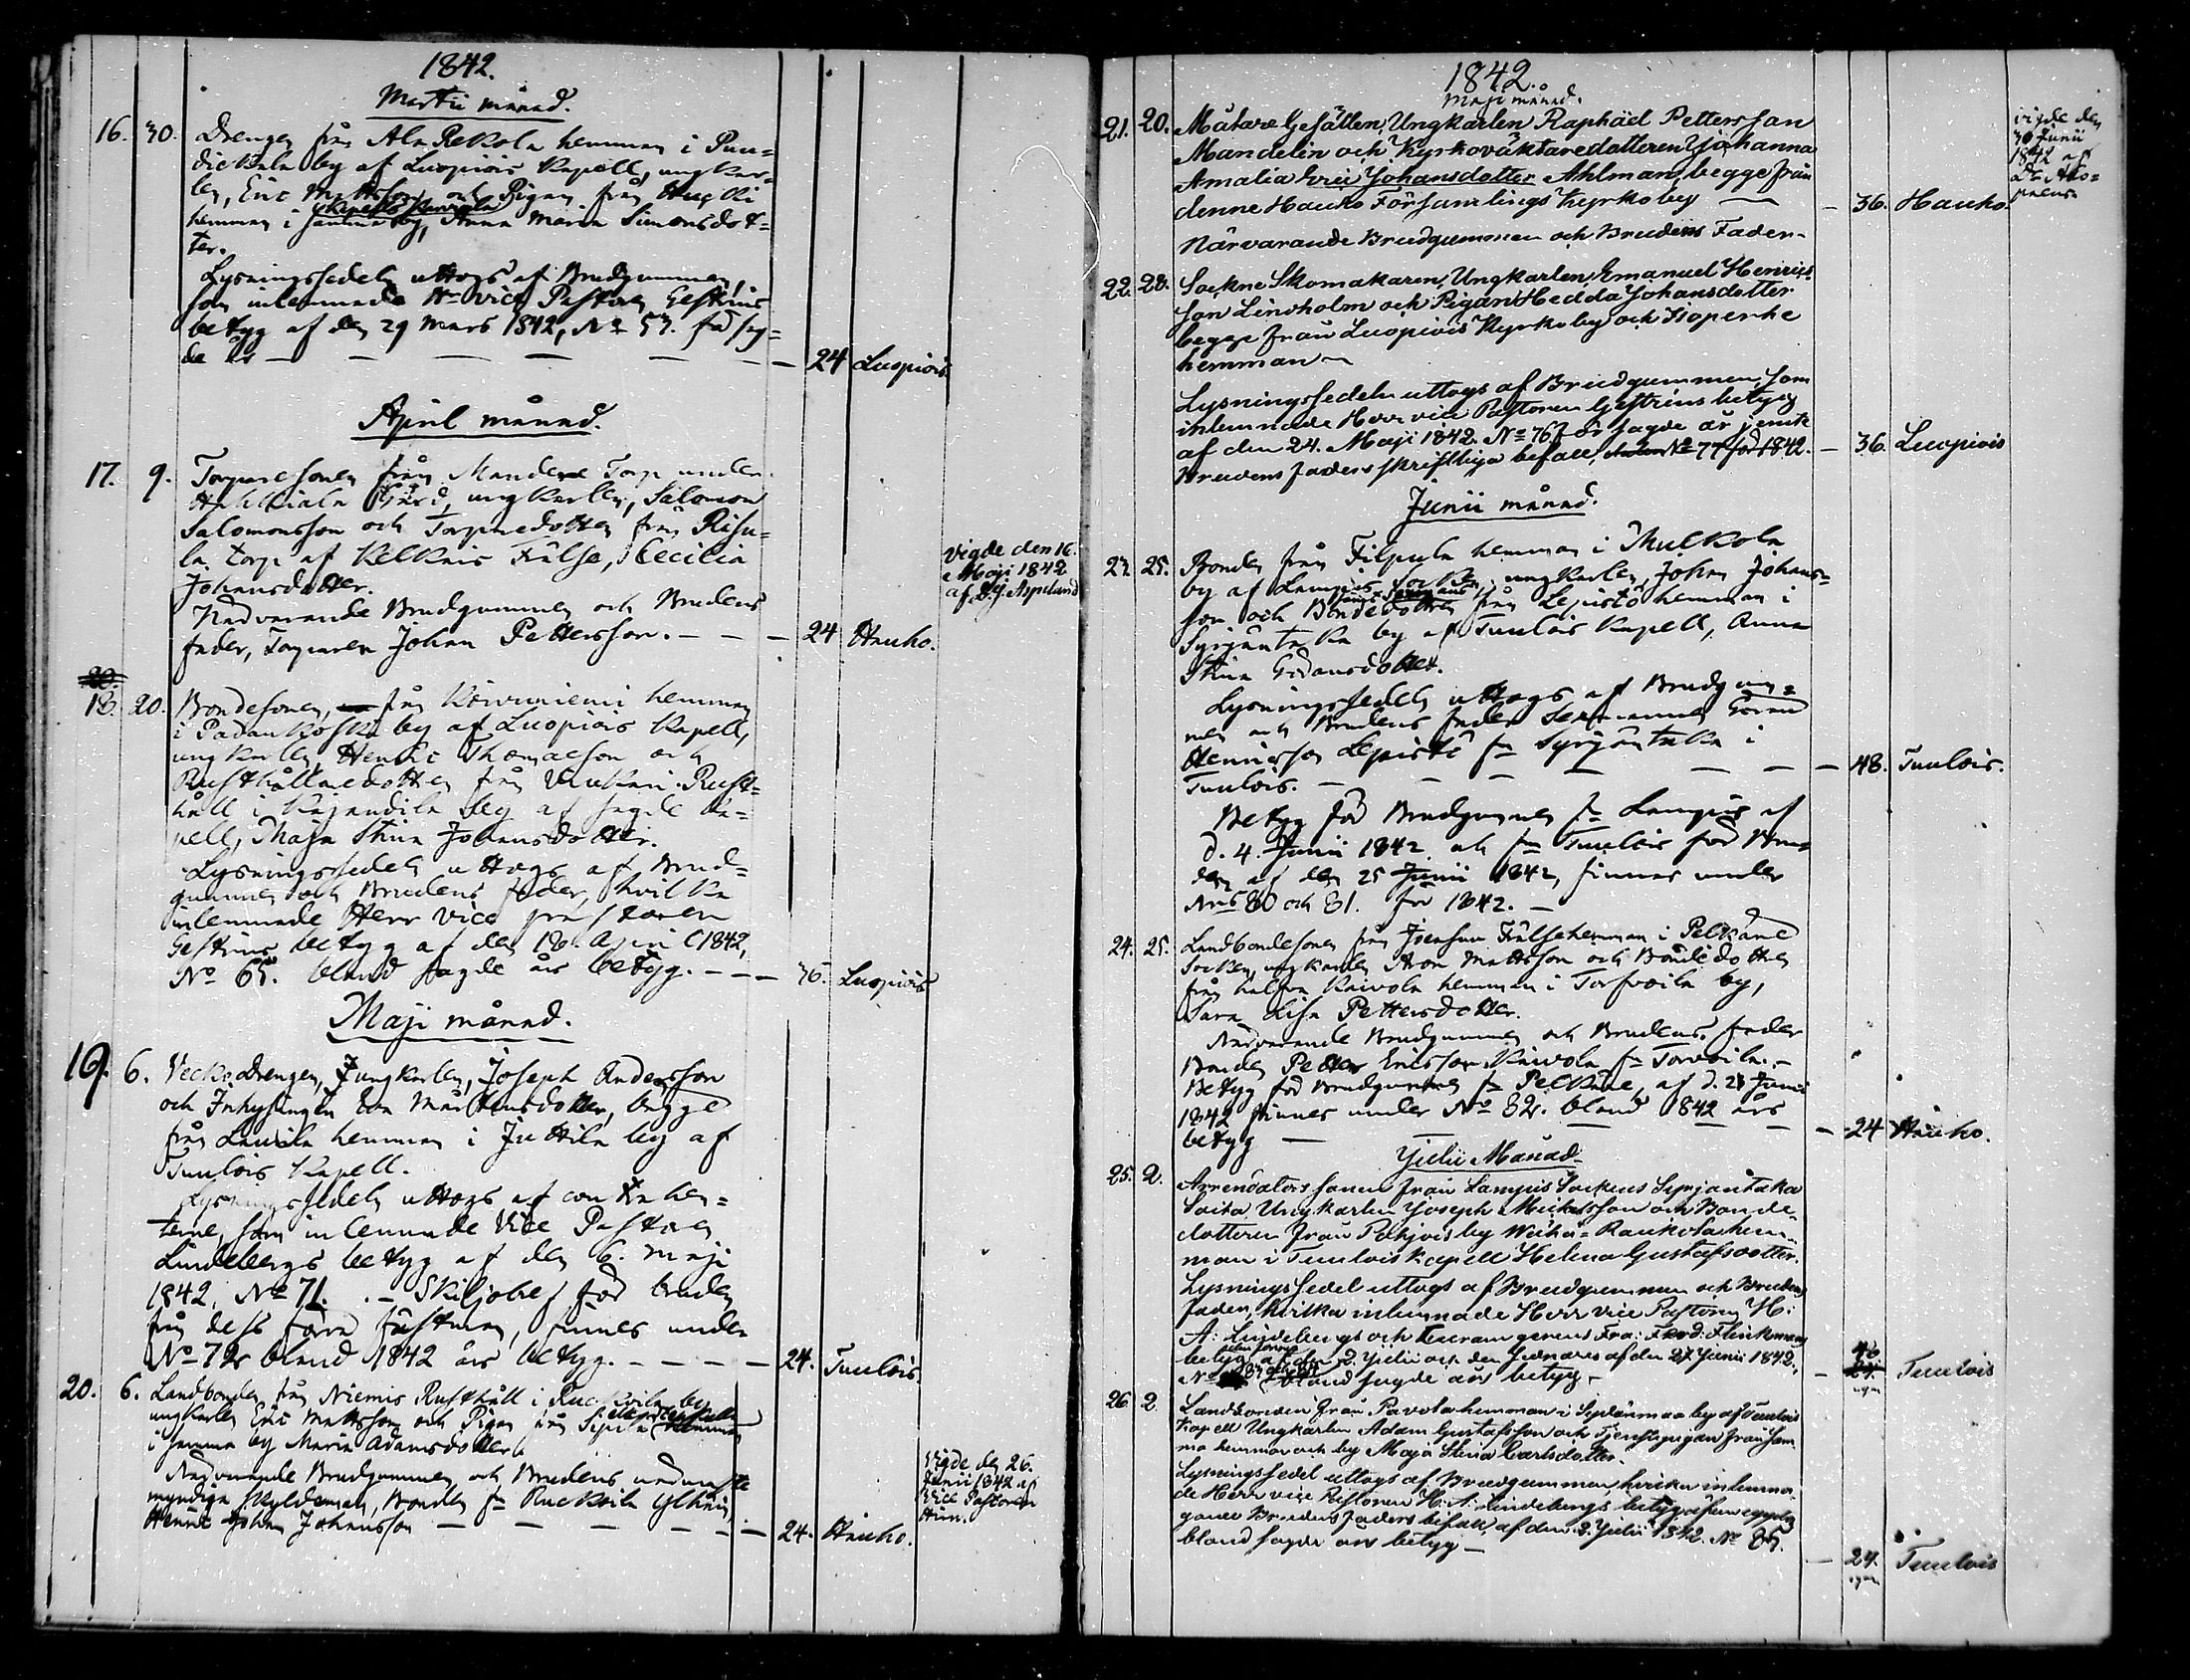 1842.
Martii månad.
16. 30. Drengen från Ala Rekola hemman i Puu-
dickala by af Luopiois Kapell, ungkar-
len, Eric Mattsson och Pigan från Hugki
hemman i samma by, Anna Maria Simonsdot-
ter.
Lysningssedeln uttogs af Brudgummen,
som inlemnade Hr vice Pastoren Gestrins
betyg af den 29 Mars 1842, No 57. för sag-
de år — — — — — 24 Luopiois
April månad.
17. 9. Torparesonen från Mandere Torp under
Gård, ungkarlen, Salomon
Salomonsson och Torparedottren från Risu-
la torp af Kelkais Frälse, Cecilia
Johansdotter.
Närvarande Brudgummen och Brudens
fader, Torparen Johan Pettersson. — — — 24 Hauho.
Vigde den 16.
Maji 1842
af J. Asplund
20.
18. 20. Bondesonen, från Koivuniemi hemman
i Padankoski by af Luopiois Kapell,
ungkarlen, Henric Thomasson och
Rusthållaredottren från Uhukari Rust-
håll i Kajandila by af sagde Ka-
pell, Maja Stina Johansdotter.
Lysningssedeln uttogs af Brud-
gummen och Brudens fader, hvilka
inlemnade Herr Vice pastoren
Gestrins betyg af den 18. April 1842,
No 65. bland sagde års betyg. — — — 36. Luopiois
Maji månad.
19. 6. Veckodrengen, Jungkarlen, Joseph Andersson
och Inhysingen Eva Mårtensdotter, begge
från Laurila hemman i Juttila by af
Tuulois Kapell.
Lysningssedeln uttogs af contrahen-
terne, som inlemnade Vice Pastoren
Lindebergs betyg af den 6. Maji
1842, No 71. — Skiljobref för bruden
från dess förra fästman, finnes under
No 72 bland 1842 års betyg. — — — — 24. Tuulois
20. 6. Landbonden från Niemis Rusthåll i Ruckoila by
ungkarlen Eric Mattsson och Pigan från Sipila hemman
i samma by Maria Adamsdotter.
Närvarande Brudgummen och Brudens närmaste
myndige skyldeman, Bonden fr Ruckoila
Johan Johansson — — — — — — 24. Hauho.
Vigde den 26.
Junii 1842 af
Vice Pastoren
1842.
Maji månad.
21. 20. Målare Gesällen, Ungkarlen Raphäel Pettersson
Mandelin och Kyrkovaktaredotteren Johanna
Amalia Johansdotter Ahlman, begge från
denne Hauho Församlings Kyrkoby — — 36. Hauho.
Närvarande Brudgummen och Brudens Fader.
vigde den
30 Junii
1842 af
22. 28. Sockne Skomakaren, Ungkarlen, Emanuel Henrics-
son Lindholm och Pigan Hedda Johansdotter
begge från Luopiois Kyrkoby och Isoperhe
hemman —
Lysningssedeln uttogs af Brudgummen, som
inlemnade Herr vice Pastoren Gestrins betyg
af den 24. Maji 1842. No 76 för sagde år jemte
Brudens faders skriftliga bifall, No 77 för 1842. — 36. Luopiois
Junii månad.
23. 25. Bonden från Filpula hemman i Mulkola
by af Lampis Socken ungkarlen, Johan Johans-
son och Bondedottren från Lepistö hemman i
Syrjäntaka by af Tuulois Kapell, Anna
Stina Göransdotter.
Lysningssedeln uttogs af Brudgum-
men och Brudens fader Göran
Henricsson Lepistö fr Syrjäntaka i
Tuulois. — — — — — — — 48. Tuulois.
Betyg för Brudgummen fr Lampis af
d. 4. Junii 1842 och fr Tuulois för Bru-
den af den 25 Junii 1842, finnes under
No 80 och 81. för 1842. —
24. 25. Landbondesonen från Joensuu Frälsehemman i Pelkäne
Socken, ungkarlen Aron Mattsson och Bondedottren
från halfva Raivola hemman i Torfvoila by,
Sara Lisa Pettersdotter.
Närvarande Brudgummen och Brudens fader
Bonden Petter Ericsson Raivola fr Torvoila. —
Betyg för Brudgummen fr Pelkäne, af d. 21 Junii
1842 finnes under No 82. bland 1842 års
betyg — — — — — — — 24 Hauho.
Julii Månad
25. 2. Arrendators sonen från Lampis Sockens Syrjäntaka
Saita Ungkarlen Joseph Mickelsson och Bonde-
dotteren från Pohjois by Wähä-Raukola hem-
man i Tuulois kapell Helena Gustafsdotter.
Lysningssedel uttogs af Brudgummen och Brudens
fader, hvilka inlemnade Herr vice Pastoren H:
A: Lindebergs och Sacram gerens Fra: Ferd: Flinkmans
betyg af den 2. Julii och den sednares af den 27 Junii 1842.
No bland sagde års betyg — — 48 24. Tuulois
26. 2 Landbonden från Pavola hemman i Sydänmaa by af Tuulois
Kapell Ungkarlen Adam Gustafsson och Tjenstepigan från sam-
ma hemman och by Maja Stina Carlsdotter.
Lysningssedel uttogs af Brudgummen, hvilka inlemna-
de Herr vice Pastoren H: A: Lindebergs betyg
Brudens faders bifall, af den 2. Julii 1842. No 85.
bland sagde års betyg — — 24. Tuulois